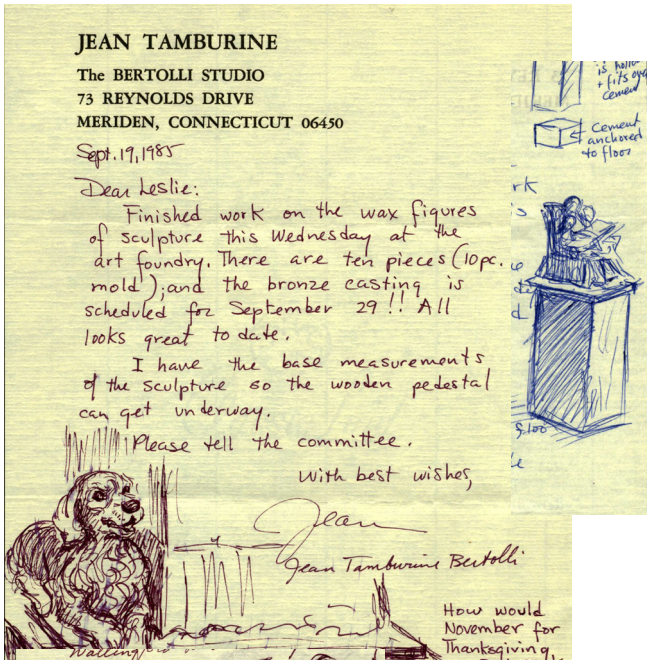 JEAN TAMBURINE
The BERTOLLI STUDIO
73 REYNOLDS DRIVE
MERIDEN, CONNECTICUT 06450
Sept. 19, 1985
Dear Leslie:
Finished work on the wax figures
of sculpture this Wednesday at the
art foundry. There are ten pieces (10pc.
mold); and the bronze casting is
scheduled for September 29!! All
looks great to date.
I have the base measurements
of the sculpture so the wooden pedestal
can get underway.
Please tell the committee.
With best wishes,
Jean
Jean Tamburine Bertolli
How would
November for
Thanksgiving,
is
+ fits
cement
Cement
anchored
to floor